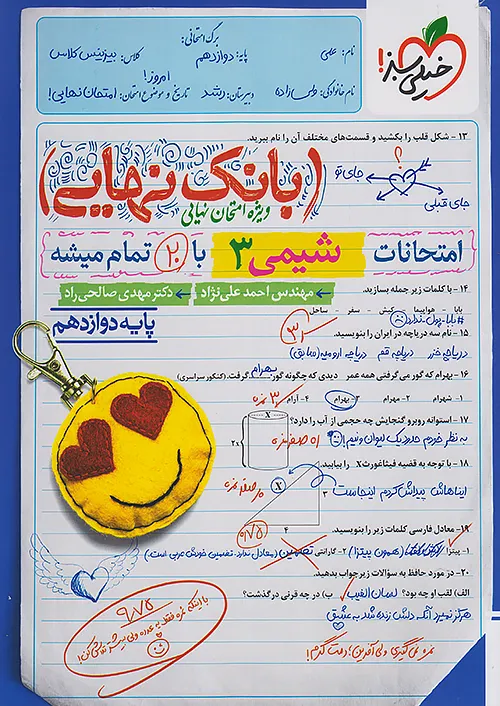 برگ امتحانی:
نام: علی
پایه: دوازدهم
کلاس: بیزینس کلاس
امروز!
نام خانوادگی: ولی زاده
دبیرستان: رشد
تاریخ و موضوع امتحان: امتحان نهایی!
خیلی سبز!
۱۳ - شکل قلب را بکشید و قسمت‌های مختلف آن را نام ببرید.
؟
جای تو
جای قبلی
(بانک نهایی)
ویژه امتحان نهایی
امتحانات شیمی ۳ با ۲۰ تمام میشه
۱۴ - با کلمات زیر جمله بسازید.
مهندس احمد علی‌نژاد
دکتر مهدی صالحی‌راد
بابا - هواپیما - کیش - سفر - ساحل
#بابا_پول_ندارد
پایه دوازدهم
۱۵ - نام سه دریاچه در ایران را بنویسید.
دریاچه خزر دریاچه قم دریاچه ارومیه (سابق)
۱۶ - بهرام که گور می گرفتی همه عمر دیدی که چگونه گور بهرام گرفت. (کنکور سراسری)
۱- شهرام ۲- بهرام ۳- مهرام ۴- آرام
۱۷ - استوانه روبرو گنجایش چه حجمی از آب را دارد؟
به نظر خودم حدود یک لیوان و نیم!
2x
x
۱۸ - با توجه به قضیه فیثاغورث X را بیابید.
ایناهاش پیداش کردم اینجاست
X
۳
۴
۱۹- معادل فارسی کلمات زیر را بنویسید.
۱- پیتزا
(همون پیتزا)
۲- گارانتی
تضمین
(معادل ندارد. تضمین خودش عربی است)
۲۰- در مورد حافظ به سؤالات زیر جواب بدهید.
الف) لقب او چه بود؟ لسان الغیب
ب) در چه قرنی درگذشت؟
هرگز نمیرد آنکه دلش زنده شد به عشق
نمره نمی گیری ولی آفرین؛ دمت گرم!
۹/۷۵